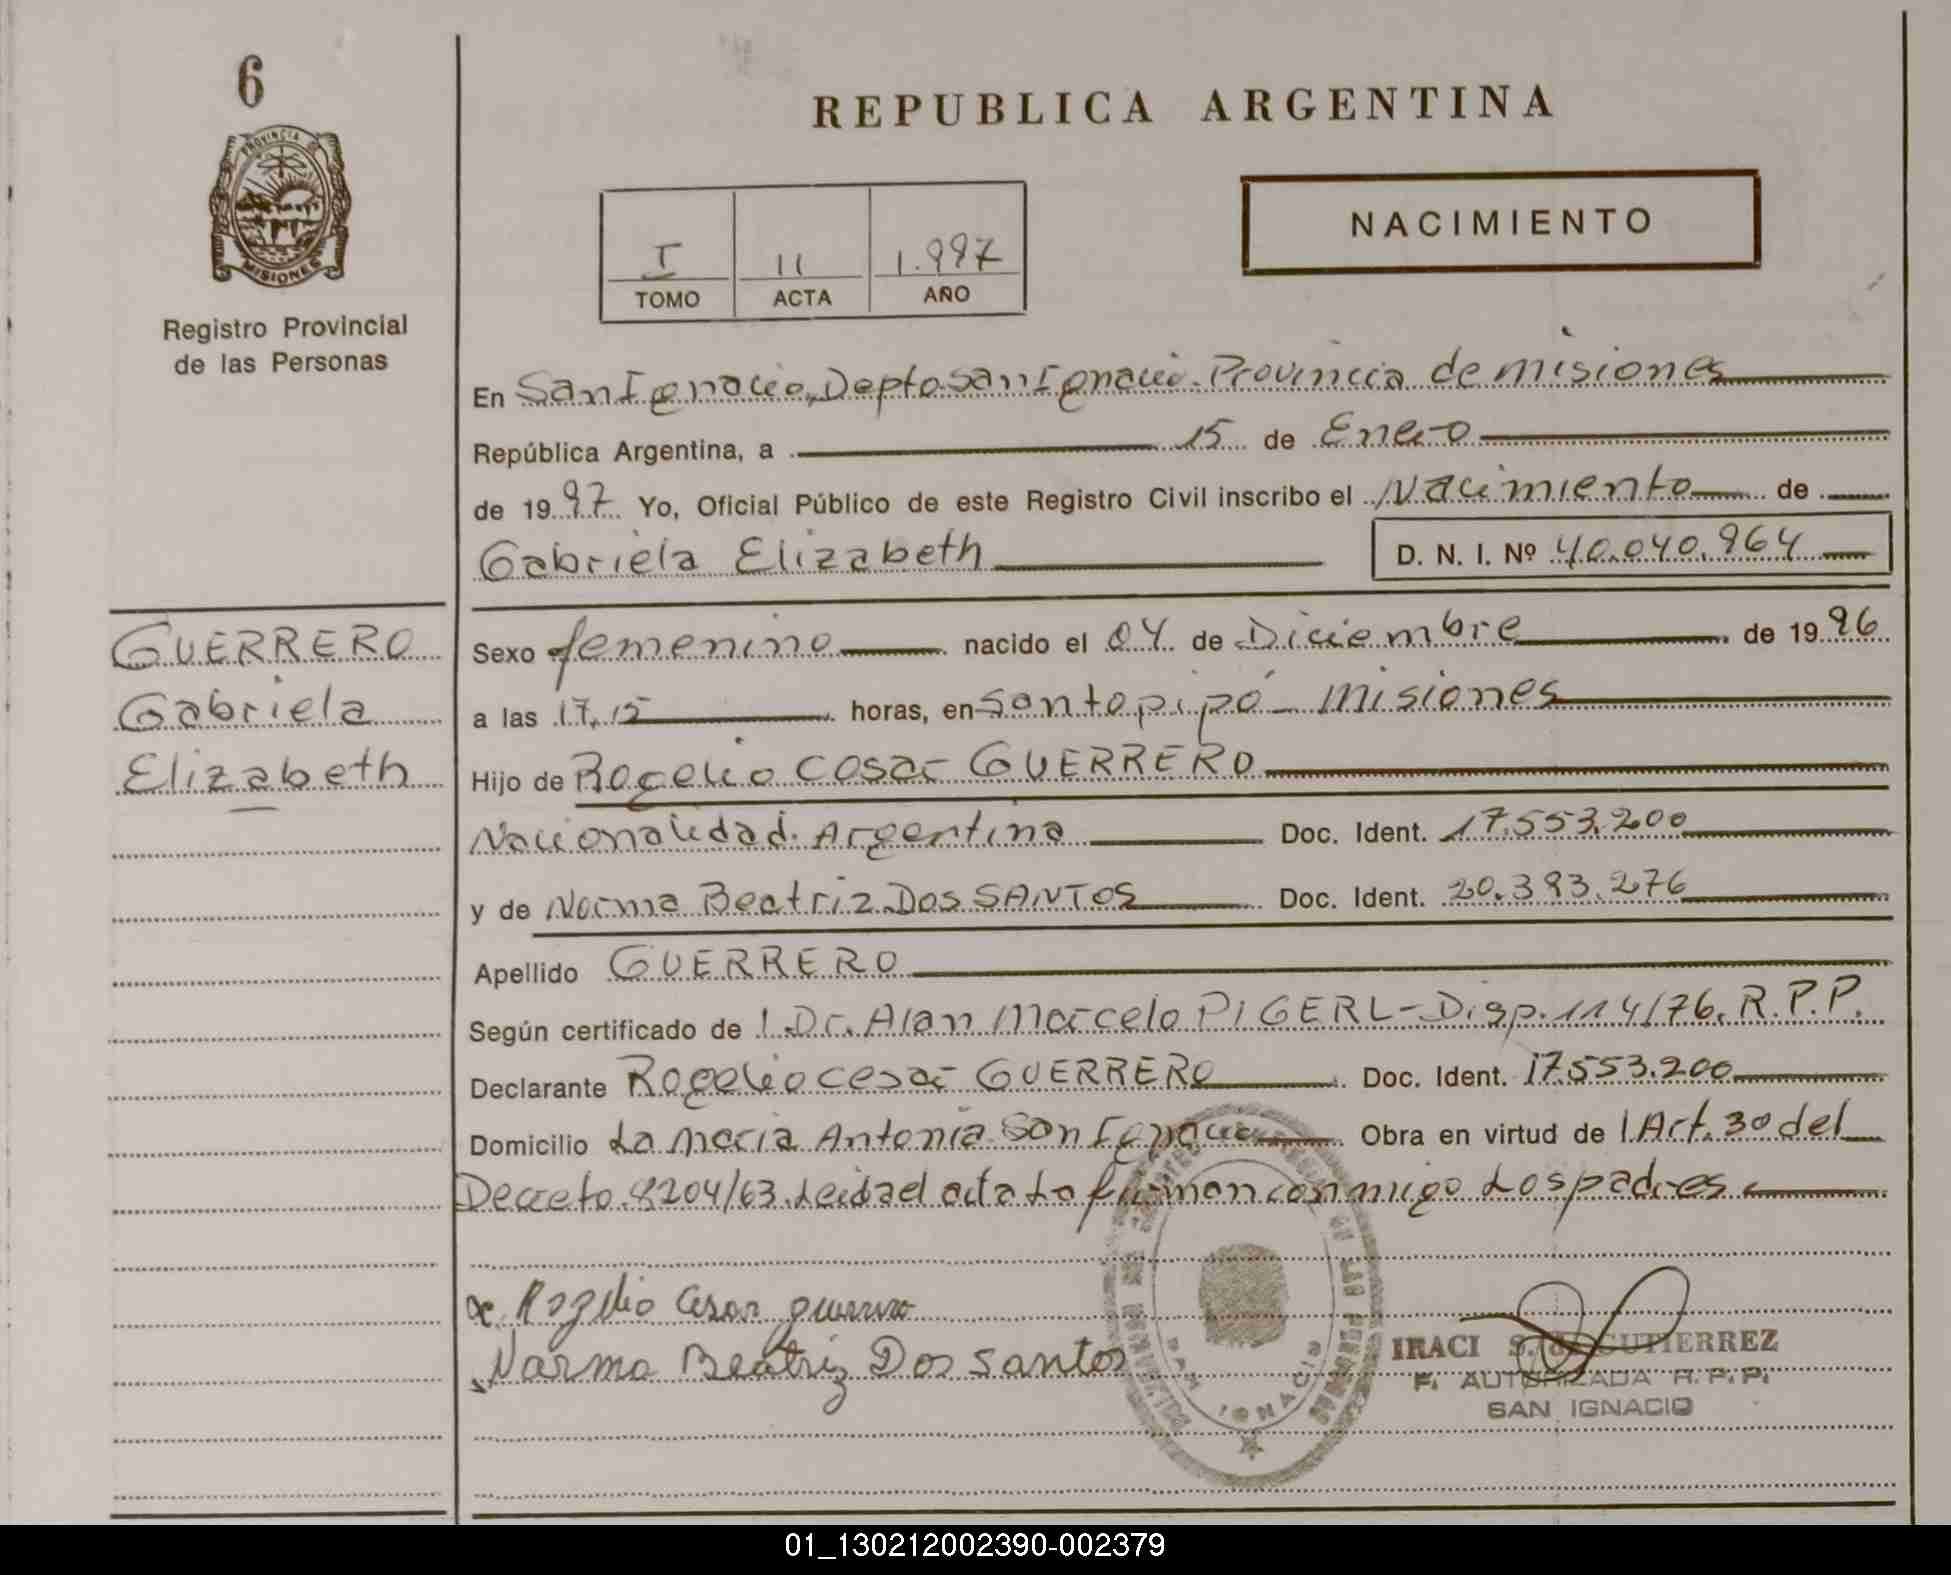 6
PROVINCIA DE
MISIONES
Registro Provincial
de las Personas
REPUBLICA ARGENTINA
I 11 1.997
TOMO ACTA AÑO
NACIMIENTO
En San Ignacio, Depto San Ignacio. Provincia de misiones
República Argentina, a 15 de Enero
de 1997 Yo, Oficial Público de este Registro Civil inscribo el Nacimiento de
Gabriela Elizabeth D. N. I. Nº 40.040.964
GUERRERO
Gabriela
Elizabeth
Sexo femenino nacido el 04 de Diciembre de 1996
a las 17,15 horas, en Santo pipó - Misiones
Hijo de Rogelio Cesar GUERRERO
Nacionalidad. Argentina Doc. Ident. 17.553.200
y de Norma Beatriz Dos SANTOS Doc. Ident. 20.393.276
Apellido GUERRERO
Según certificado de l Dr. Alan Marcelo PIGERL - Disp. 114/76. R.P.P.
Declarante Rogelio cesar GUERRERO Doc. Ident. 17.553.200
Domicilio La Maria Antonia San Ignacio Obra en virtud de l Art. 30 del
Decreto 8204/63. Leida el acta La firman conmigo Los padres
Rogelio Cesar guerrero
Norma Beatriz Dos santos
IRACI S. de GUTIERREZ
F. AUTORIZADA R. P. P.
SAN IGNACIO
SAN IGNACIO
01_130212002390-002379